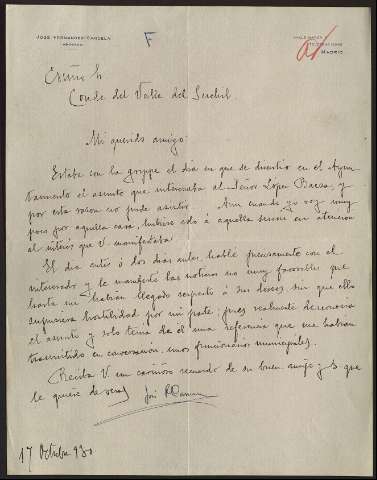 JOSÉ FERNÁNDEZ CANCELA
ABOGADO
F
MADRID
Excmo Sr
Conde del Valle del Suchil.
Mi querido amigo:
Estaba con la grippe el día en que se discutió en el Ayun
tamiento el asunto que interesaba al Señor López Baeza, y
por esta razon no pude asistir. Aun cuando yo voy muy
poco por aquella casa, hubiese ido á aquella sesión en atencion
al interés que V. manifestaba
El día antes ó dos días antes, hablé precisamente con el
interesado y le manifesté las noticias no muy favorables que
hasta mi habían llegado respecto á sus deseos, sin que ello
supusiera hostilidad por mi parte; pues realmente desconocia
el asunto y solo tenia de él una referencia que me habían
trasmitido en conversación, unos funcionarios municipales.
Reciba V un cariñoso recuerdo de su buen amigo y s que
le quiere de veras José
17 Octubre 930